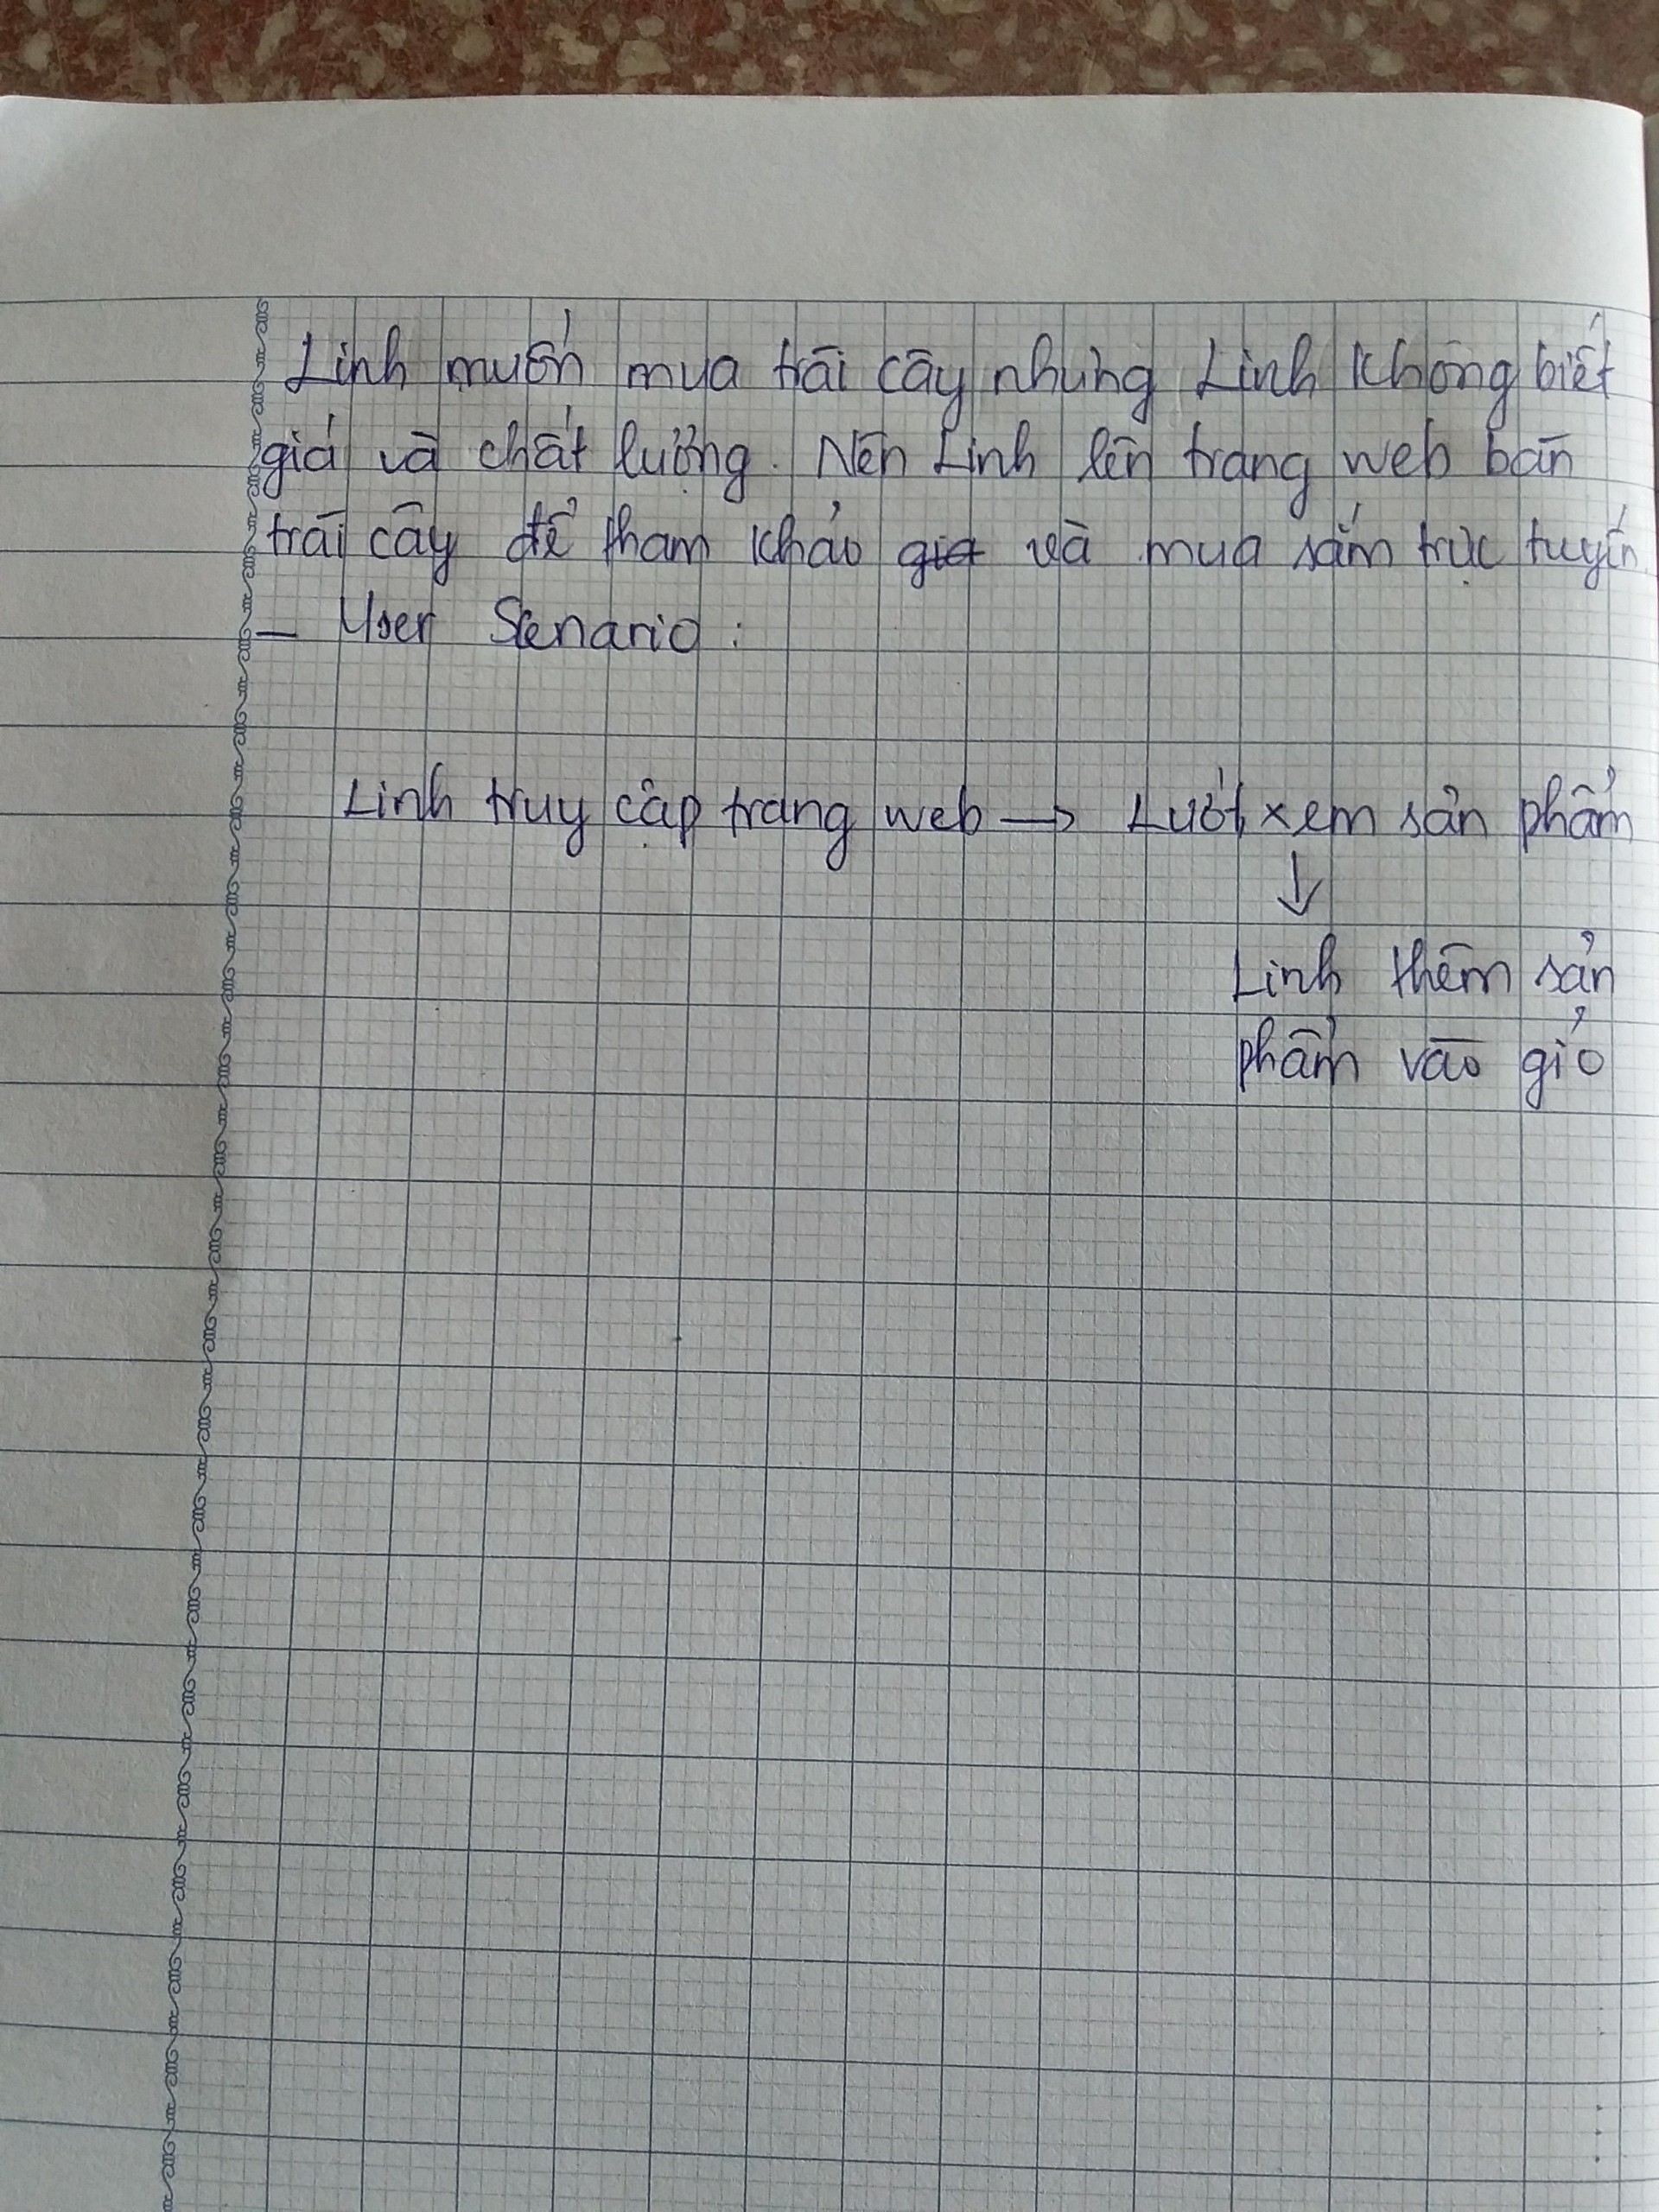 Linh muốn mua trái cây nhưng Linh không biết
giá và chất lượng. Nên Linh lên trang web bán
trái cây để tham khảo giá và mua sắm trực tuyến
- User Scenario :
Linh truy cập trang web → Lướt xem sản phẩm
↓
Linh thêm sản
phẩm vào giỏ